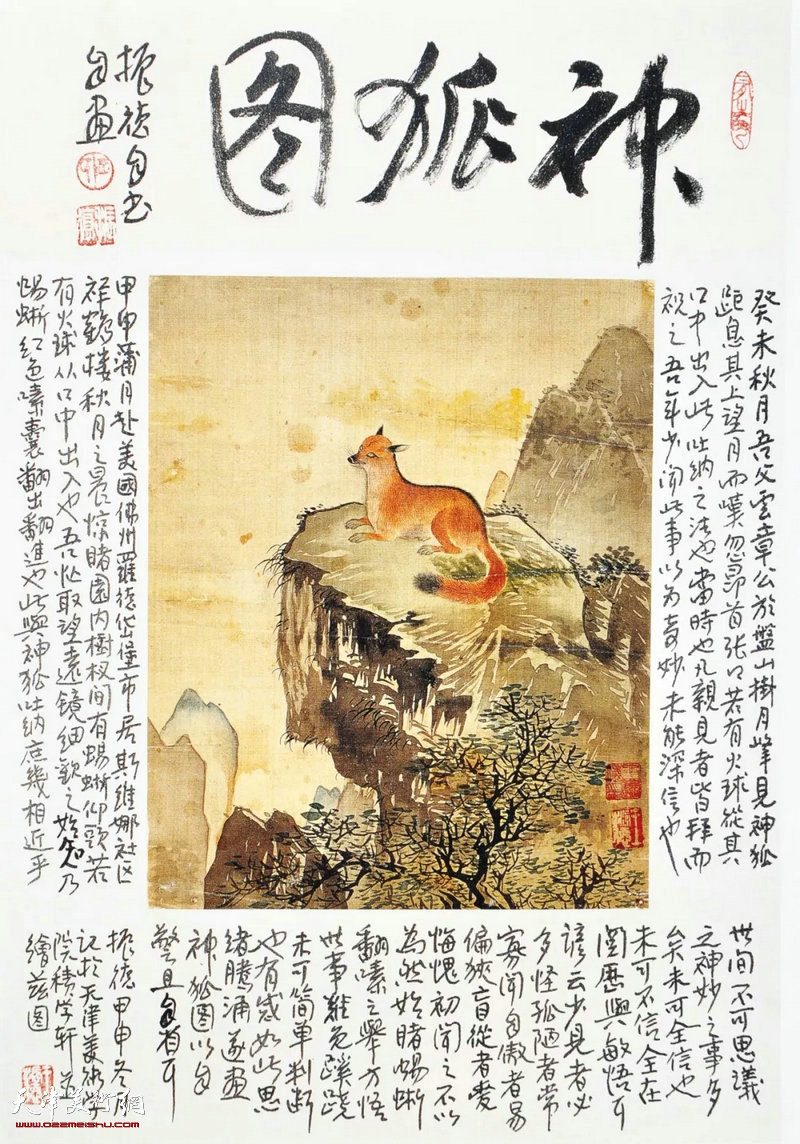 神狐图
振德自书
自画
癸未秋月吾父云章公於盤山掛月峰見神狐
踞息其上望月而嘆忽昂首张口若有火球從其
口中出入此吐纳之法也當時也凡親見者皆拜而
视之吾年少闻此事以为奇妙未能深信也
甲申蒲月赴美國佛州羅德岱堡市居斯維娜社区
祥鹤楼秋月之晨惊睹園内樹杈间有蜴蜥仰頸若
有火球从口中出入也吾忙取望遠镜细觀之始知乃
蜴蜥红色嗉囊翻出翻進也此與神狐吐纳庶幾相近乎
世间不可思議
之神妙之事多
矣未可全信也
未可不信全在
閲歷與敏悟耳
諺云少見者必
多怪孤陋者常
寡闻自傲者易
偏狭盲從者愛
悔愧初聞之不以
為然始睹蜴蜥
翻嗉之舉方悟
世事難免蹊蹺
未可简单判断
也有感如此思
緒騰涌遂画
神狐图以自
警且自省耳
振德甲申冬月
記於天津美術学
院積学轩並
繪兹图
天津美术网
www.022meishu.com